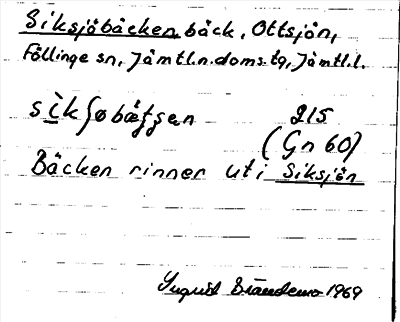 Siksjöbäcken, bäck, Ottsjön,
Föllinge sn, Jämtl.n.doms.tg, Jämtl.l.
215
(Gn 60)
Bäcken rinner uti Siksjön
Ingrid 1969